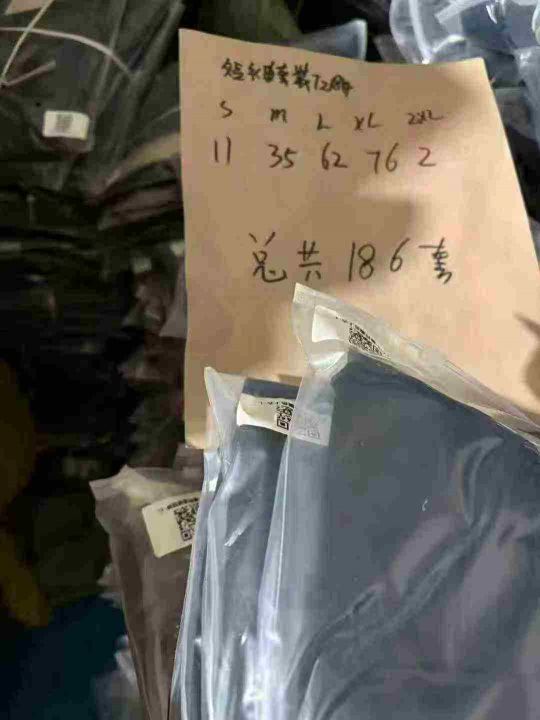 短衣套装728#
S M L XL 2XL
11 35 62 76 2
总共186套